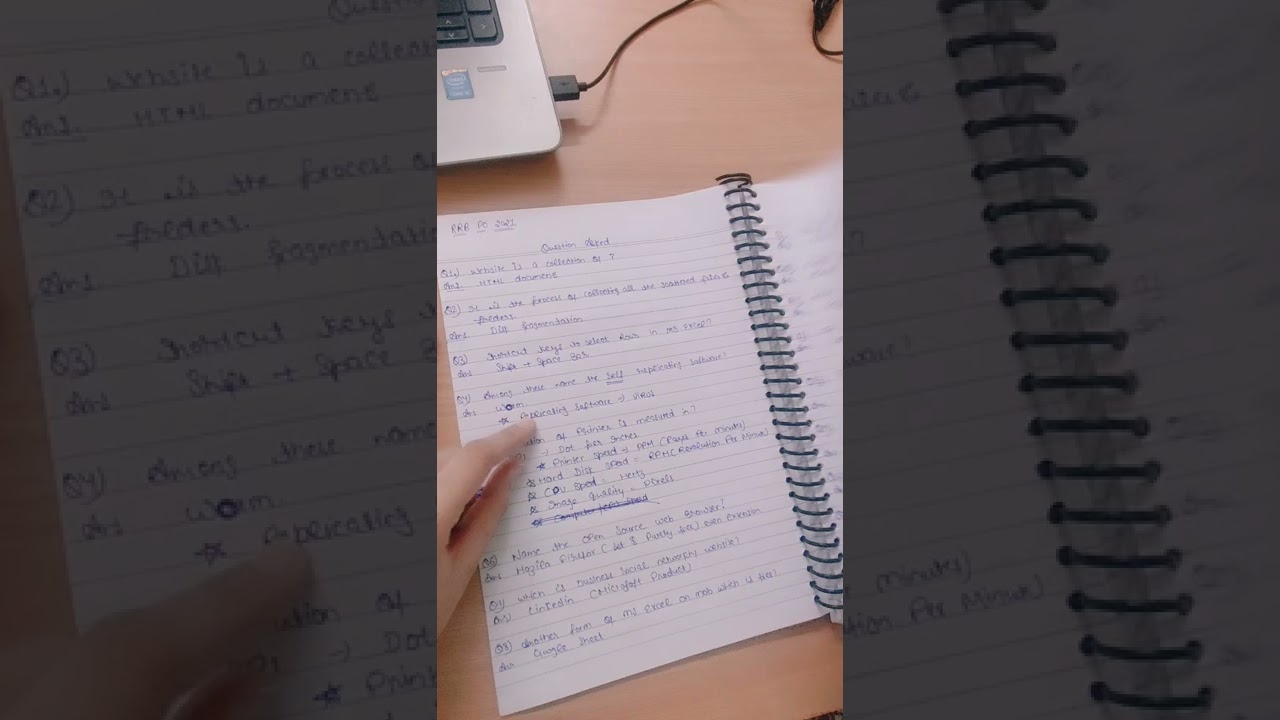 RRB PO 2021
Question Asked
Q1.) Website is a collection of ?
Ans. HTML document
Q2) It is the process of collecting all the scattered files &
folders.
Ans. Disk fragmentation
Q3) Shortcut keys to select Rows in MS Excel?
Ans Shift + Space Bar
Q4) Among these name the self replicating software?
Ans Worm
Replicating software → Virus
ution of Printer is measured in?
→ Dot per Inches
Printer Speed → PPM (Pages Per Minutes)
Hard Disk Speed = RPM (Revolution Per Minus)
CPU Speed = Hertz
Image Quality = Pixels
Computer Speed
Q6) Name the open source web Browser?
Ans Mozila (1st & Purely free) even Extension
Q7) Which is business social website?
Ans) Linkedin (Microsoft Product)
Q8) Another form of MS Excel on mob which is free?
Ans Google Sheet